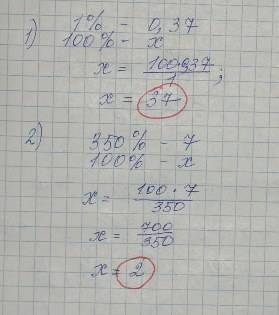 1) 1% - 0,37
100% - x
x = 100·0,37 / 1 ;
x = 37
2) 350% - 7
100% - x
x = 100 · 7 / 350
x = 700 / 350
x = 2